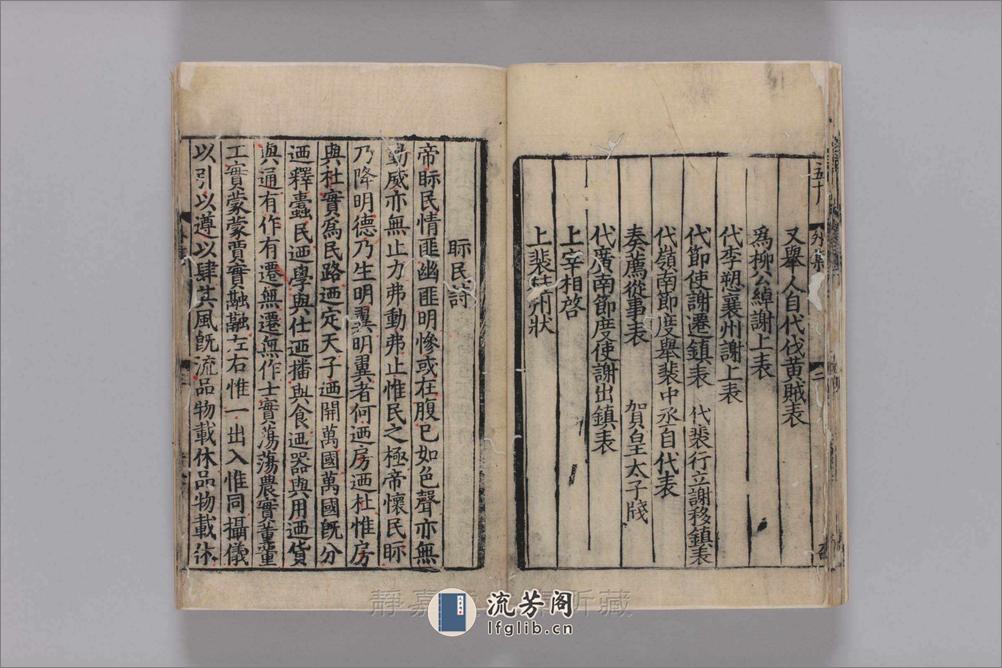 又舉人自代伐黃賊表
爲柳公綽謝上表
代李愬襄州謝上表
代節使謝遷鎮表 代裴行立謝移鎮表
代嶺南節度舉裴中丞自代表
奏薦從事表 賀皇太子牋
代廣南節度使謝出鎮表
上宰相啓
上裴州狀
眎民詩
帝眎民情匪幽匪明慘或在腹已如色聲亦無
動威亦無止力弗動弗止惟民之極帝懷民眎
乃降明德乃生明翼明翼者何迺房迺杜惟房
與杜實爲民路迺定天子迺開萬國萬國旣分
迺釋蠹民迺學與仕迺播與食迺器與用迺貨
與通有作有遷無遷無作士實蕩蕩農實董董
工實蒙蒙賈實融融左右惟一出入惟同攝儀
以引以遵以肆其風旣流品物載休品物載休
靜嘉 所藏
流芳阁
lfglib.cn